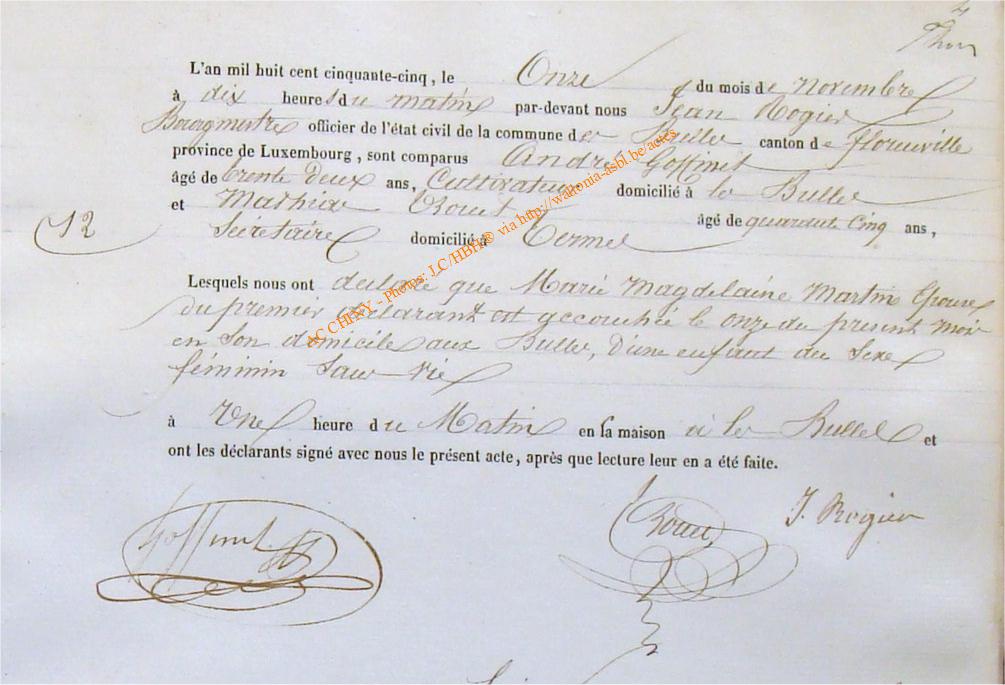 L'an mil huit cent cinquante-cinq, le Onze du mois de Novembre
à dix heures du matin par-devant nous Jean Rogier
Bourgmestre officier de l'état civil de la commune de Bulles canton de florenville
province de Luxembourg, sont comparus André Goffinet
âgé de trente deux ans, Cultivateur domicilié à les Bulles
et Mathieu âgé de quarante Cinq ans,
12
Secrétaire domicilié à Termes
Lesquels nous ont déclaré que Marie Magdelaine Martin Epouse
du premier déclarant est accouchée le onze du present mois
en son domicile aux Bulles, d'une enfant du Sexe
féminin sans vie
à Une heure du Matin en la maison à les Bulles et
ont les déclarants signé avec nous le présent acte, après que lecture leur en a été faite.
Goffinet J. Rogier
AC CHINY - Photos: J.C/HBH® via http://wallonia-asbl.be/actes